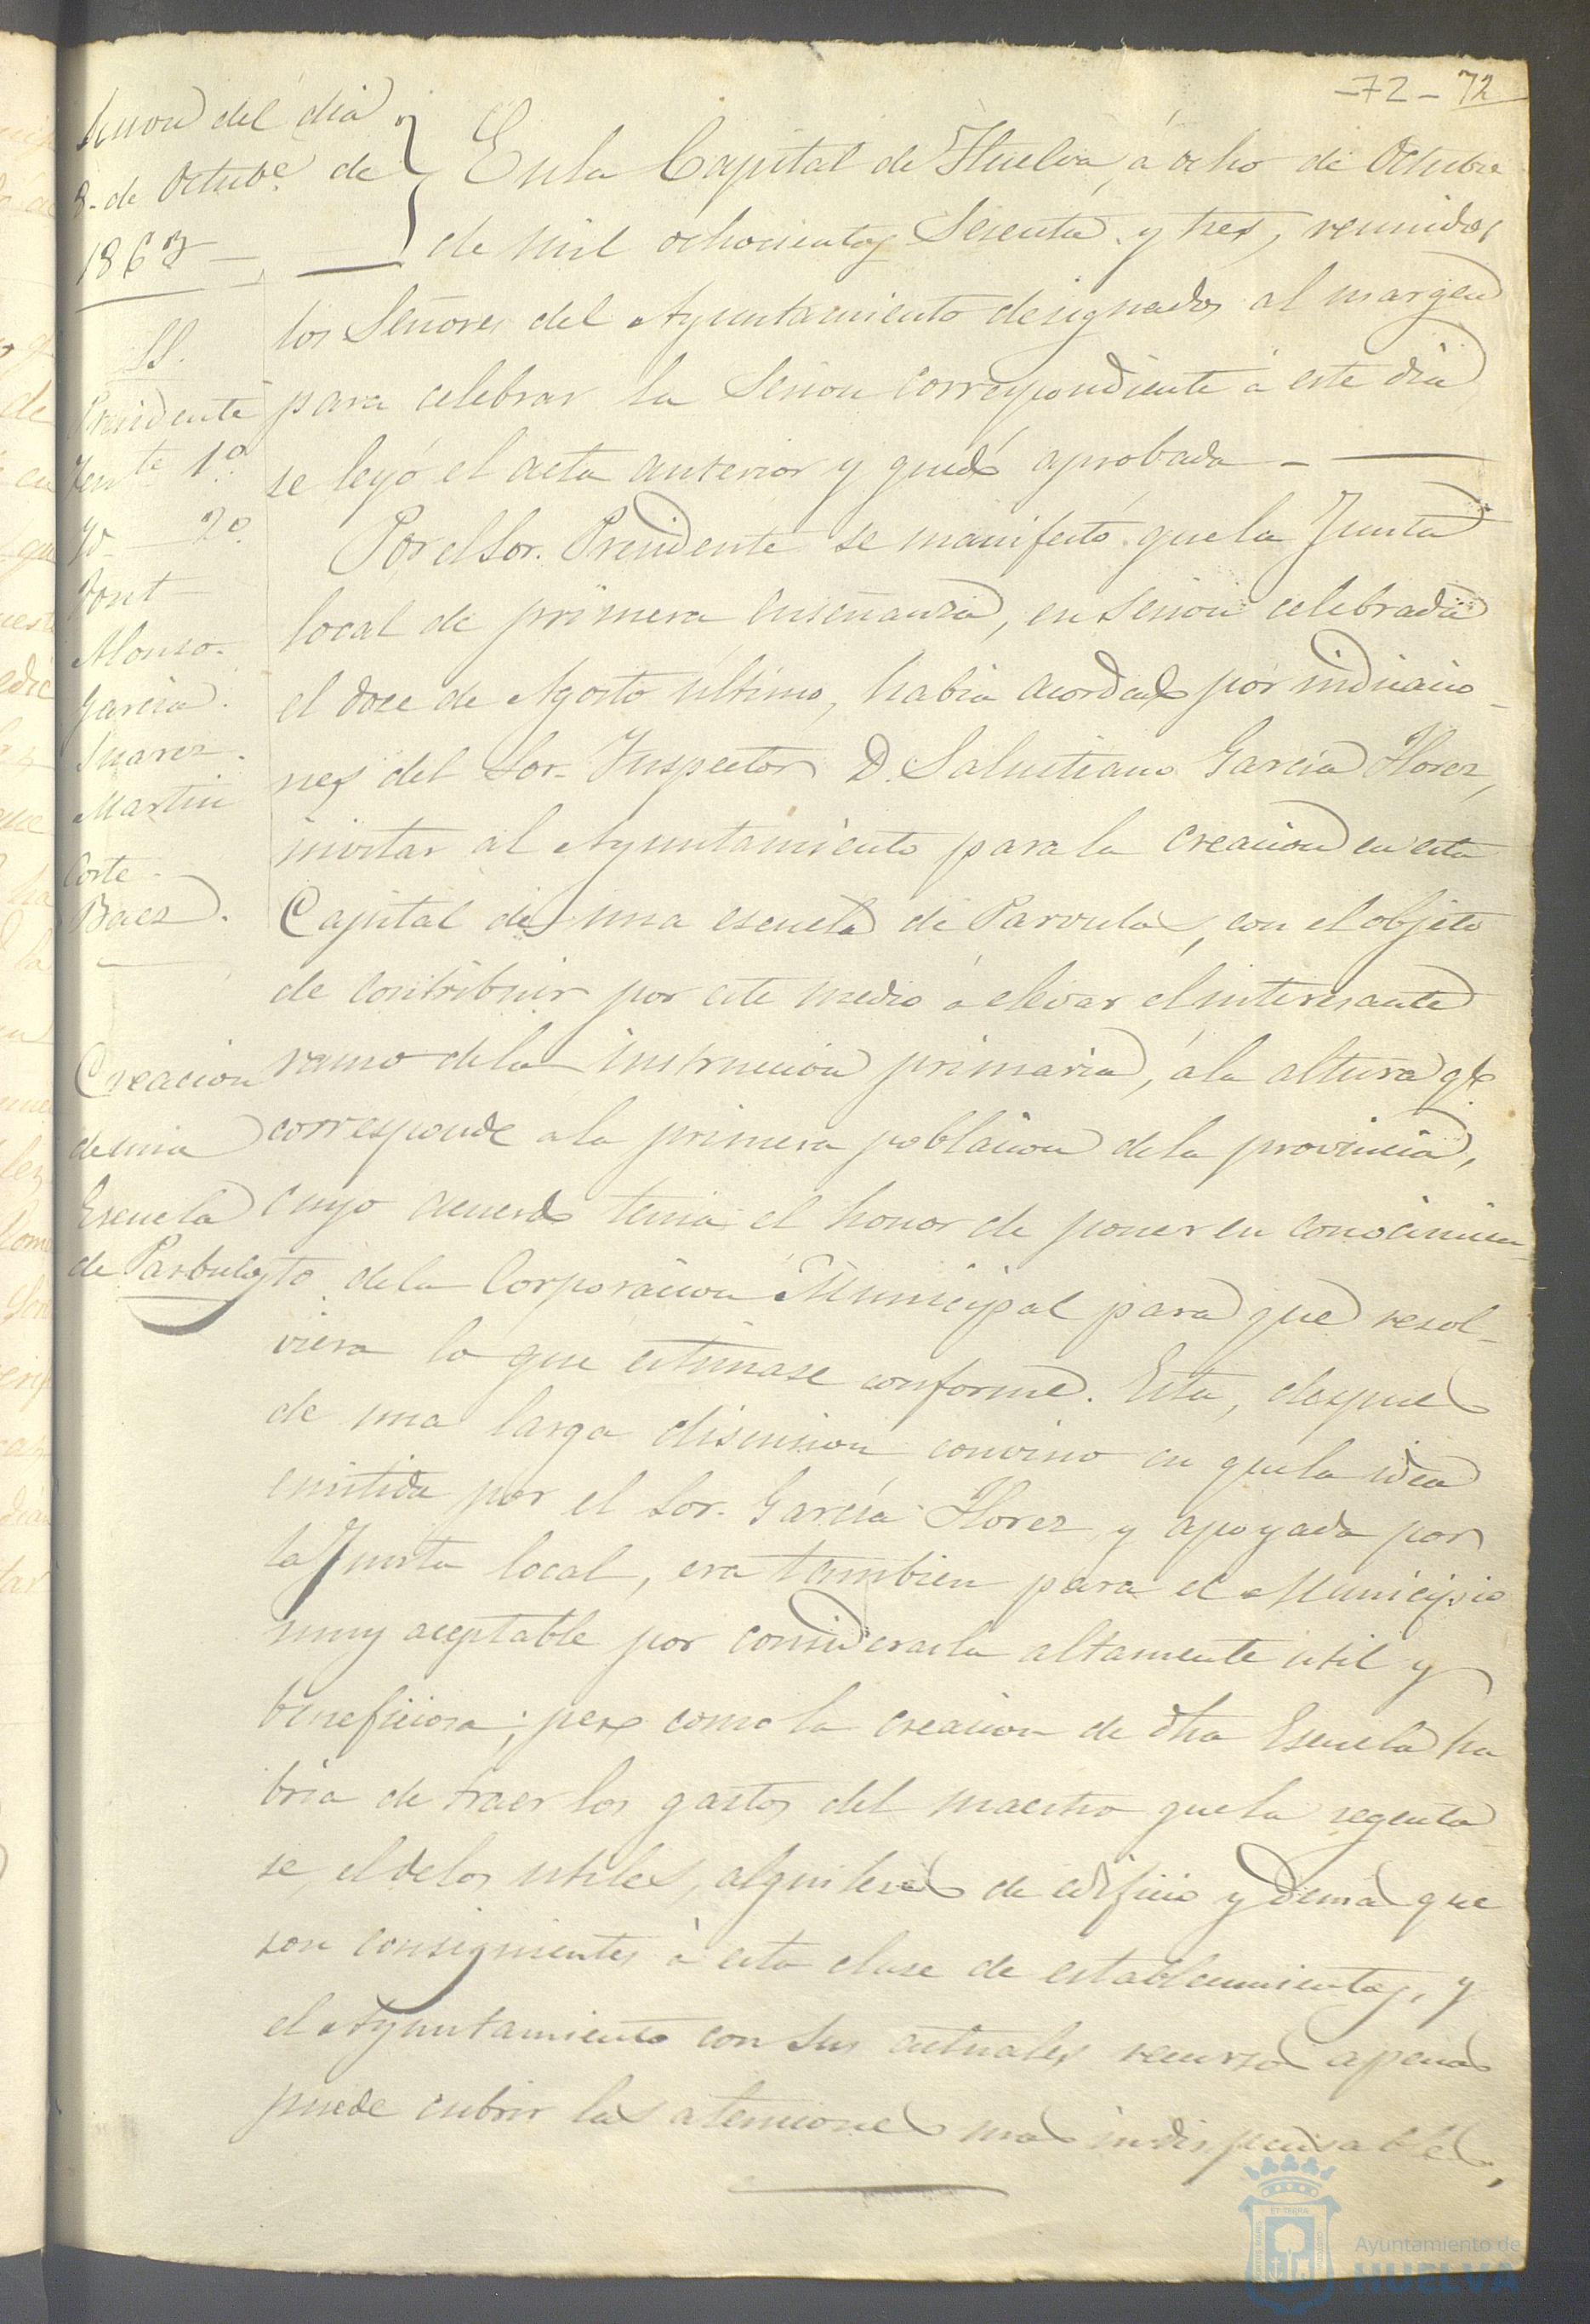 -72- 72
Sesion del dia
8. de Octub.e de
1863
SS.
Presidente
Tente. 1º.
Yd. 2º.
Font
Alonso.
Garcia.
Suarez.
Martin
Corte.
Baez.
Creacion
de una
Escuela
de Parbulos
En la Capital de Huelva, á ocho de Octubre
de mil ochocientos Sesenta y tres, reunidos
los Señores del Ayuntamiento designados al margen
para celebrar la Sesion correspondiente á este dia
se leyó el acta anterior y quedó aprobada -
Por el Sor. Presidente se manifestó que la Junta
local de primera enseñanza, en sesion celebrada
el doce de Agosto ultimo, habia acordado por indicacio-
nes del Sor. Inspector D. Salustiano Garcia Florez,
invitar al Ayuntamiento para la creacion en esta
Capital de una escuela de Parvulos, con el objeto
de contribuir por este medio á elevar el interesante
ramo de la instruccion primaria, á la altura qe.
corresponde a la primera poblacion de la provincia,
cuyo acuerdo tenia el honor de poner en conocimien-
to de la Corporacion Municipal para que resol-
viera lo que estimase conforme. Esta, despues
de una larga discusion convino en que la idea
emitida por el Sor. Garcia Florez y apoyada por
la Junta local, era tambien para el Municipio
muy aceptable por considerarla altamente util y
beneficiosa; pero como la creacion de dha Escuela ha
bria de traer los gastos del maestro que la regenta
se, el de los utiles, alquileres de edificio y demas que
son consiguientes á esta clase de establecimientos, y
el Ayuntamiento con sus actuales recursos apenas
puede cubrir las atenciones mas indispensables,
Ayuntamiento de
HUELVA